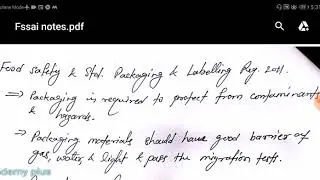 5:31
Fssai notes.pdf
Food safety & Std. Packaging & Labelling Reg. 2011.
⇒ Packaging is required to protect from contaminants
& hazards.
⇒ Packaging materials should have good barrier of
gas, water & light & pass the migration tests.
demy plus